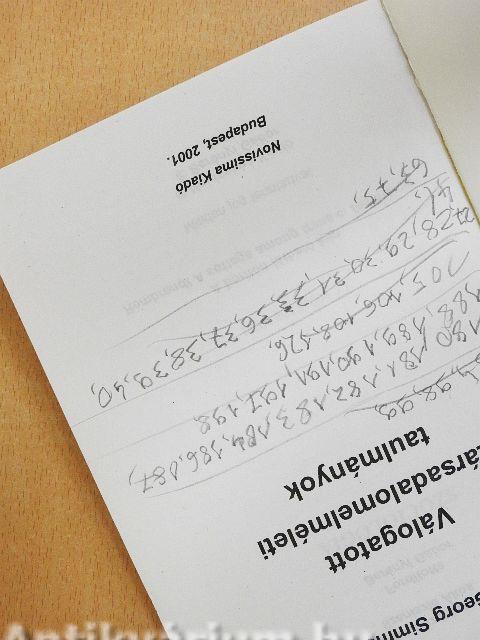 Georg Simm
Válogatott
társadalomelméleti
taulmányok
98, 99,
180 181, 182, 183, 184, 186, 187)
188, 189, 190, 191, 197, 198
105, 106, 108, 126,
27, 28, 29, 30, 31, 33, 36, 37, 38, 39, 40,
41,
67, 75,
Novissima Kiadó
Budapest, 2001.
Antikvárium.hu